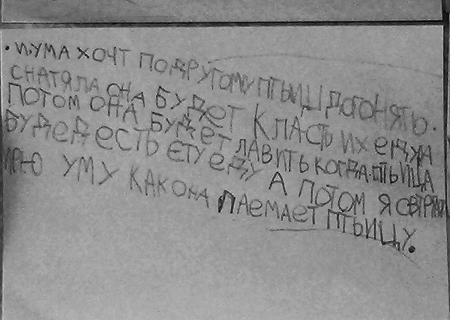 · И УМА ХОЧТ ПОДРУГОМУ ПТЬИЦ ДОГОНЯТЬ.
СНАТЯЛА ОНА БУДЕТ КЛАСТЬ ИХ ЕДУ НА
ПОТОМ ОНА БУДЕТ ЛАВИТЬ КОГДА ПТЬИЦА
БУДЕД ЕСТЬ ЕТУ ЕДУ А ПОТОМ Я
УМУ КАК ОНА ПАЕМАЕТ ПТЬИЦУ.